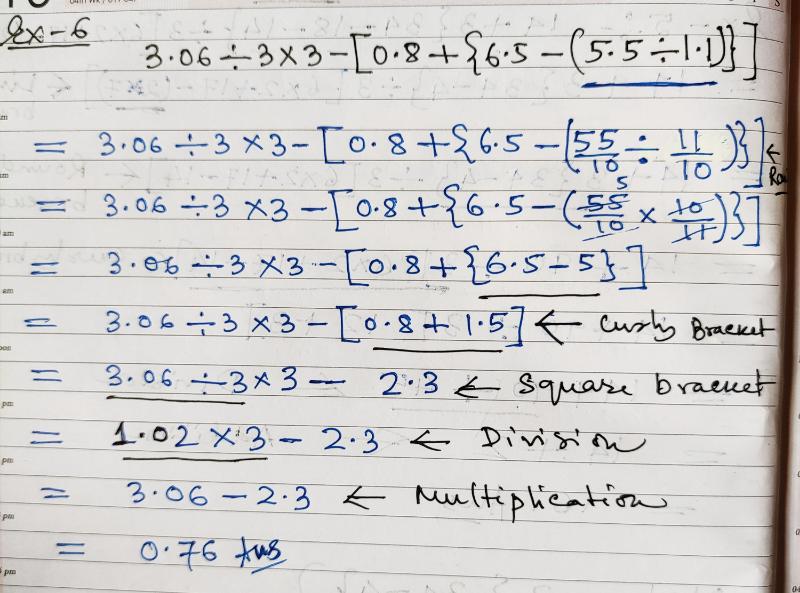 Ex-6
3.06÷3×3-[0.8+{6.5-(5.5÷1.1)}]
= 3.06÷3×3-[0.8+{6.5-(55/10÷11/10)}] ←
= 3.06÷3×3-[0.8+{6.5-(55/10×10/11)}]
= 3.06÷3×3-[0.8+{6.5-5}]
= 3.06÷3×3-[0.8+1.5] ← Curly Bracket
= 3.06÷3×3- 2.3 ← Square bracket
= 1.02×3- 2.3 ← Division
= 3.06-2.3 ← Multiplication
= 0.76 Ans